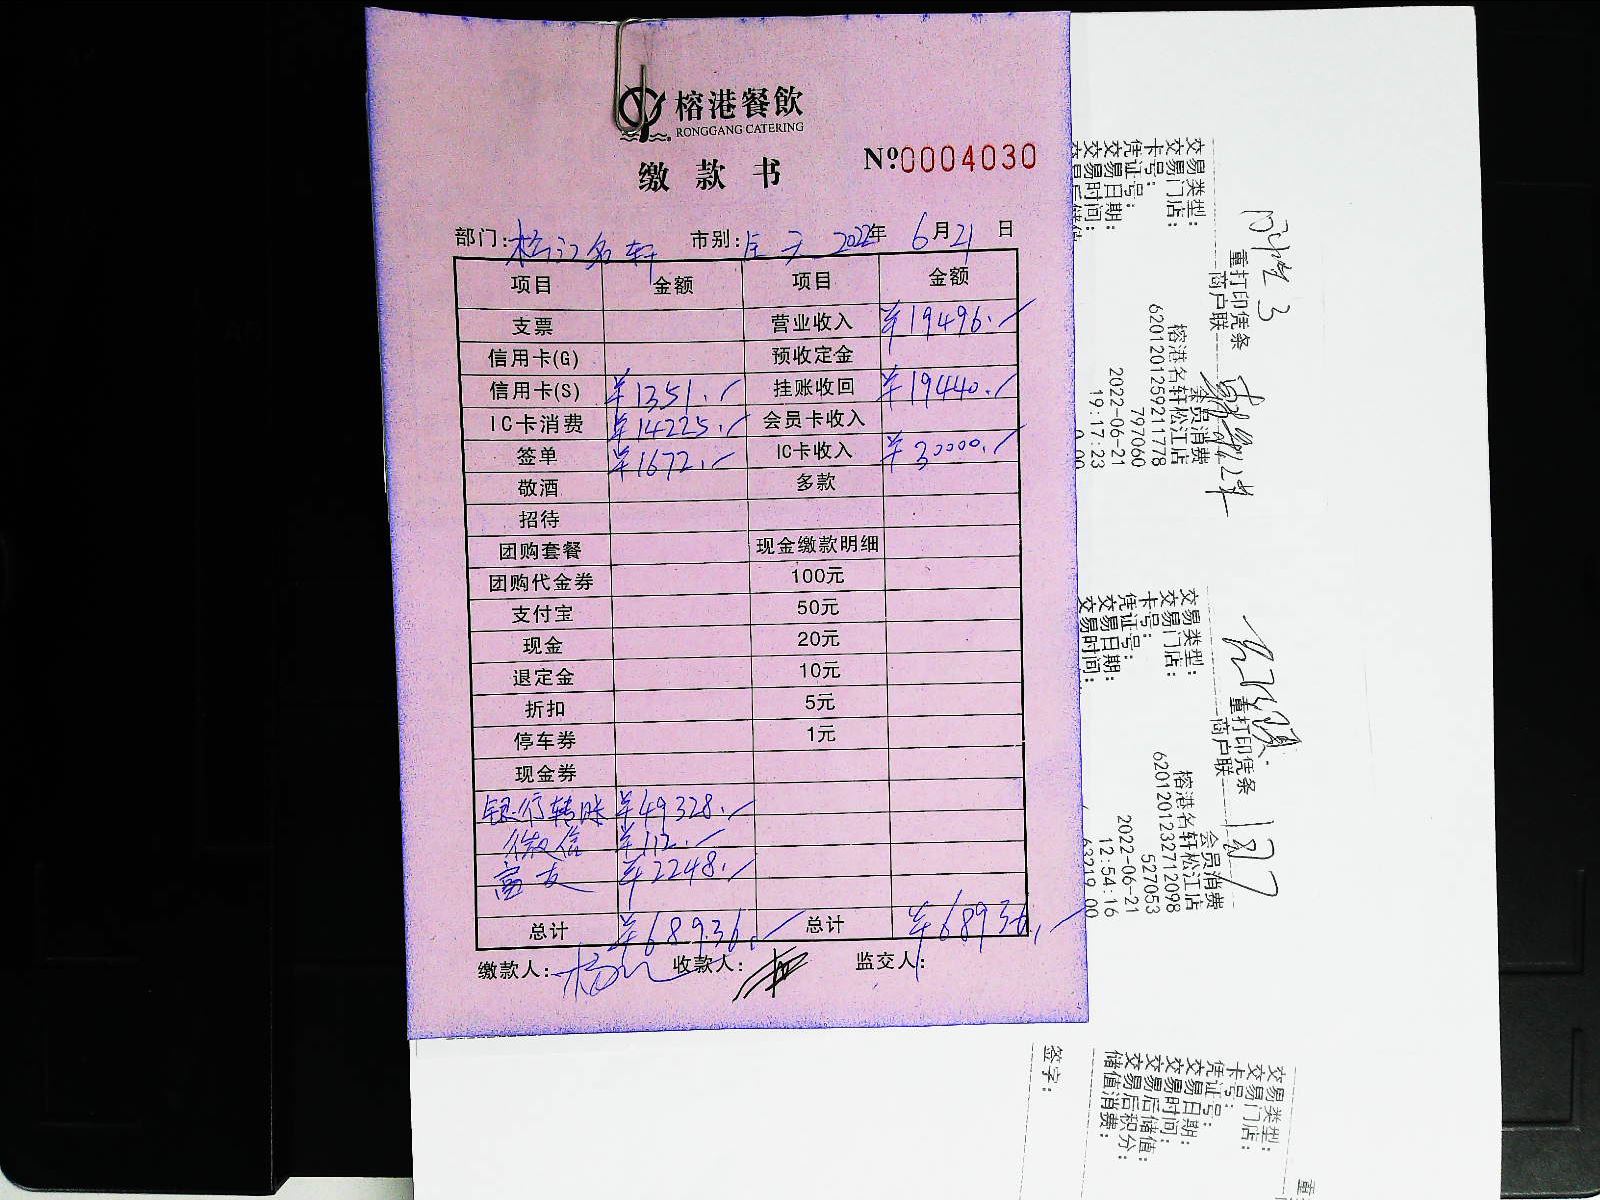 榕港餐飲
RONGGANG CATERING
缴款书
Nº0004030
部门: 松江名轩 市别: 全天 2022年 6月21日
项目 金额 项目 金额
支票 营业收入 ¥19496.
信用卡(G) 预收定金
信用卡(S) ¥1351. 挂账收回 ¥19440.
IC卡消费 ¥14225. 会员卡收入
签单 ¥1672. IC卡收入 ¥30000.
敬酒 多款
招待
团购套餐 现金缴款明细
团购代金券 100元
支付宝 50元
现金 20元
退定金 10元
折扣 5元
停车券 1元
现金券
银行转账 ¥49328.
微信 ¥112.
富友 ¥2248.
总计 ¥68936. 总计 ¥68936.
缴款人: 收款人: 监交人:
重打印凭条
商户联
交易类型: 会员消费
交易门店: 榕港名轩松江店
卡号: 6201201259211778
凭证号: 797060
交易日期: 2022-06-21
交易时间: 19:17:23
重打印凭条
商户联
交易类型: 会员消费
交易门店: 榕港名轩松江店
卡号: 6201201232712098
凭证号: 527053
交易日期: 2022-06-21
交易时间: 12:54:16
63219.00
交易类型:
交易门店:
卡号:
凭证号:
交易日期:
交易时间:
交易后储值:
交易后积分:
储值消费:
签字: